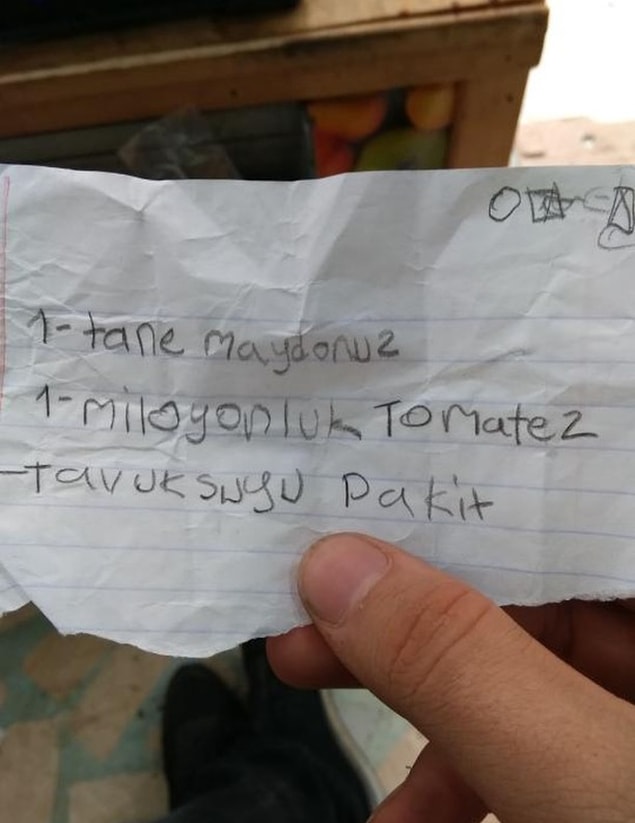 1-tane maydonuz
1-miloyonluk Tomatez
-Tavuksuyu Pakit